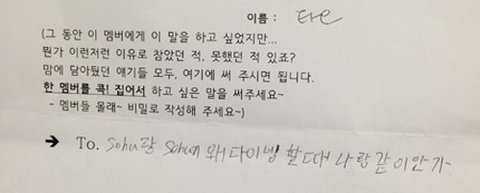 이름 : 타오
(그 동안 이 멤버에게 이 말을 하고 싶었지만...
뭔가 이런저런 이유로 참았던 적, 못했던 적 있죠?
맘에 담아뒀던 얘기들 모두, 여기에 써 주시면 됩니다.
한 멤버를 콕! 집어서 하고 싶은 말을 써주세요~
- 멤버들 몰래~ 비밀로 작성해 주세요~)
→ To. Sehu랄 왜 다이빙 할 때 나랑 같이 안 가